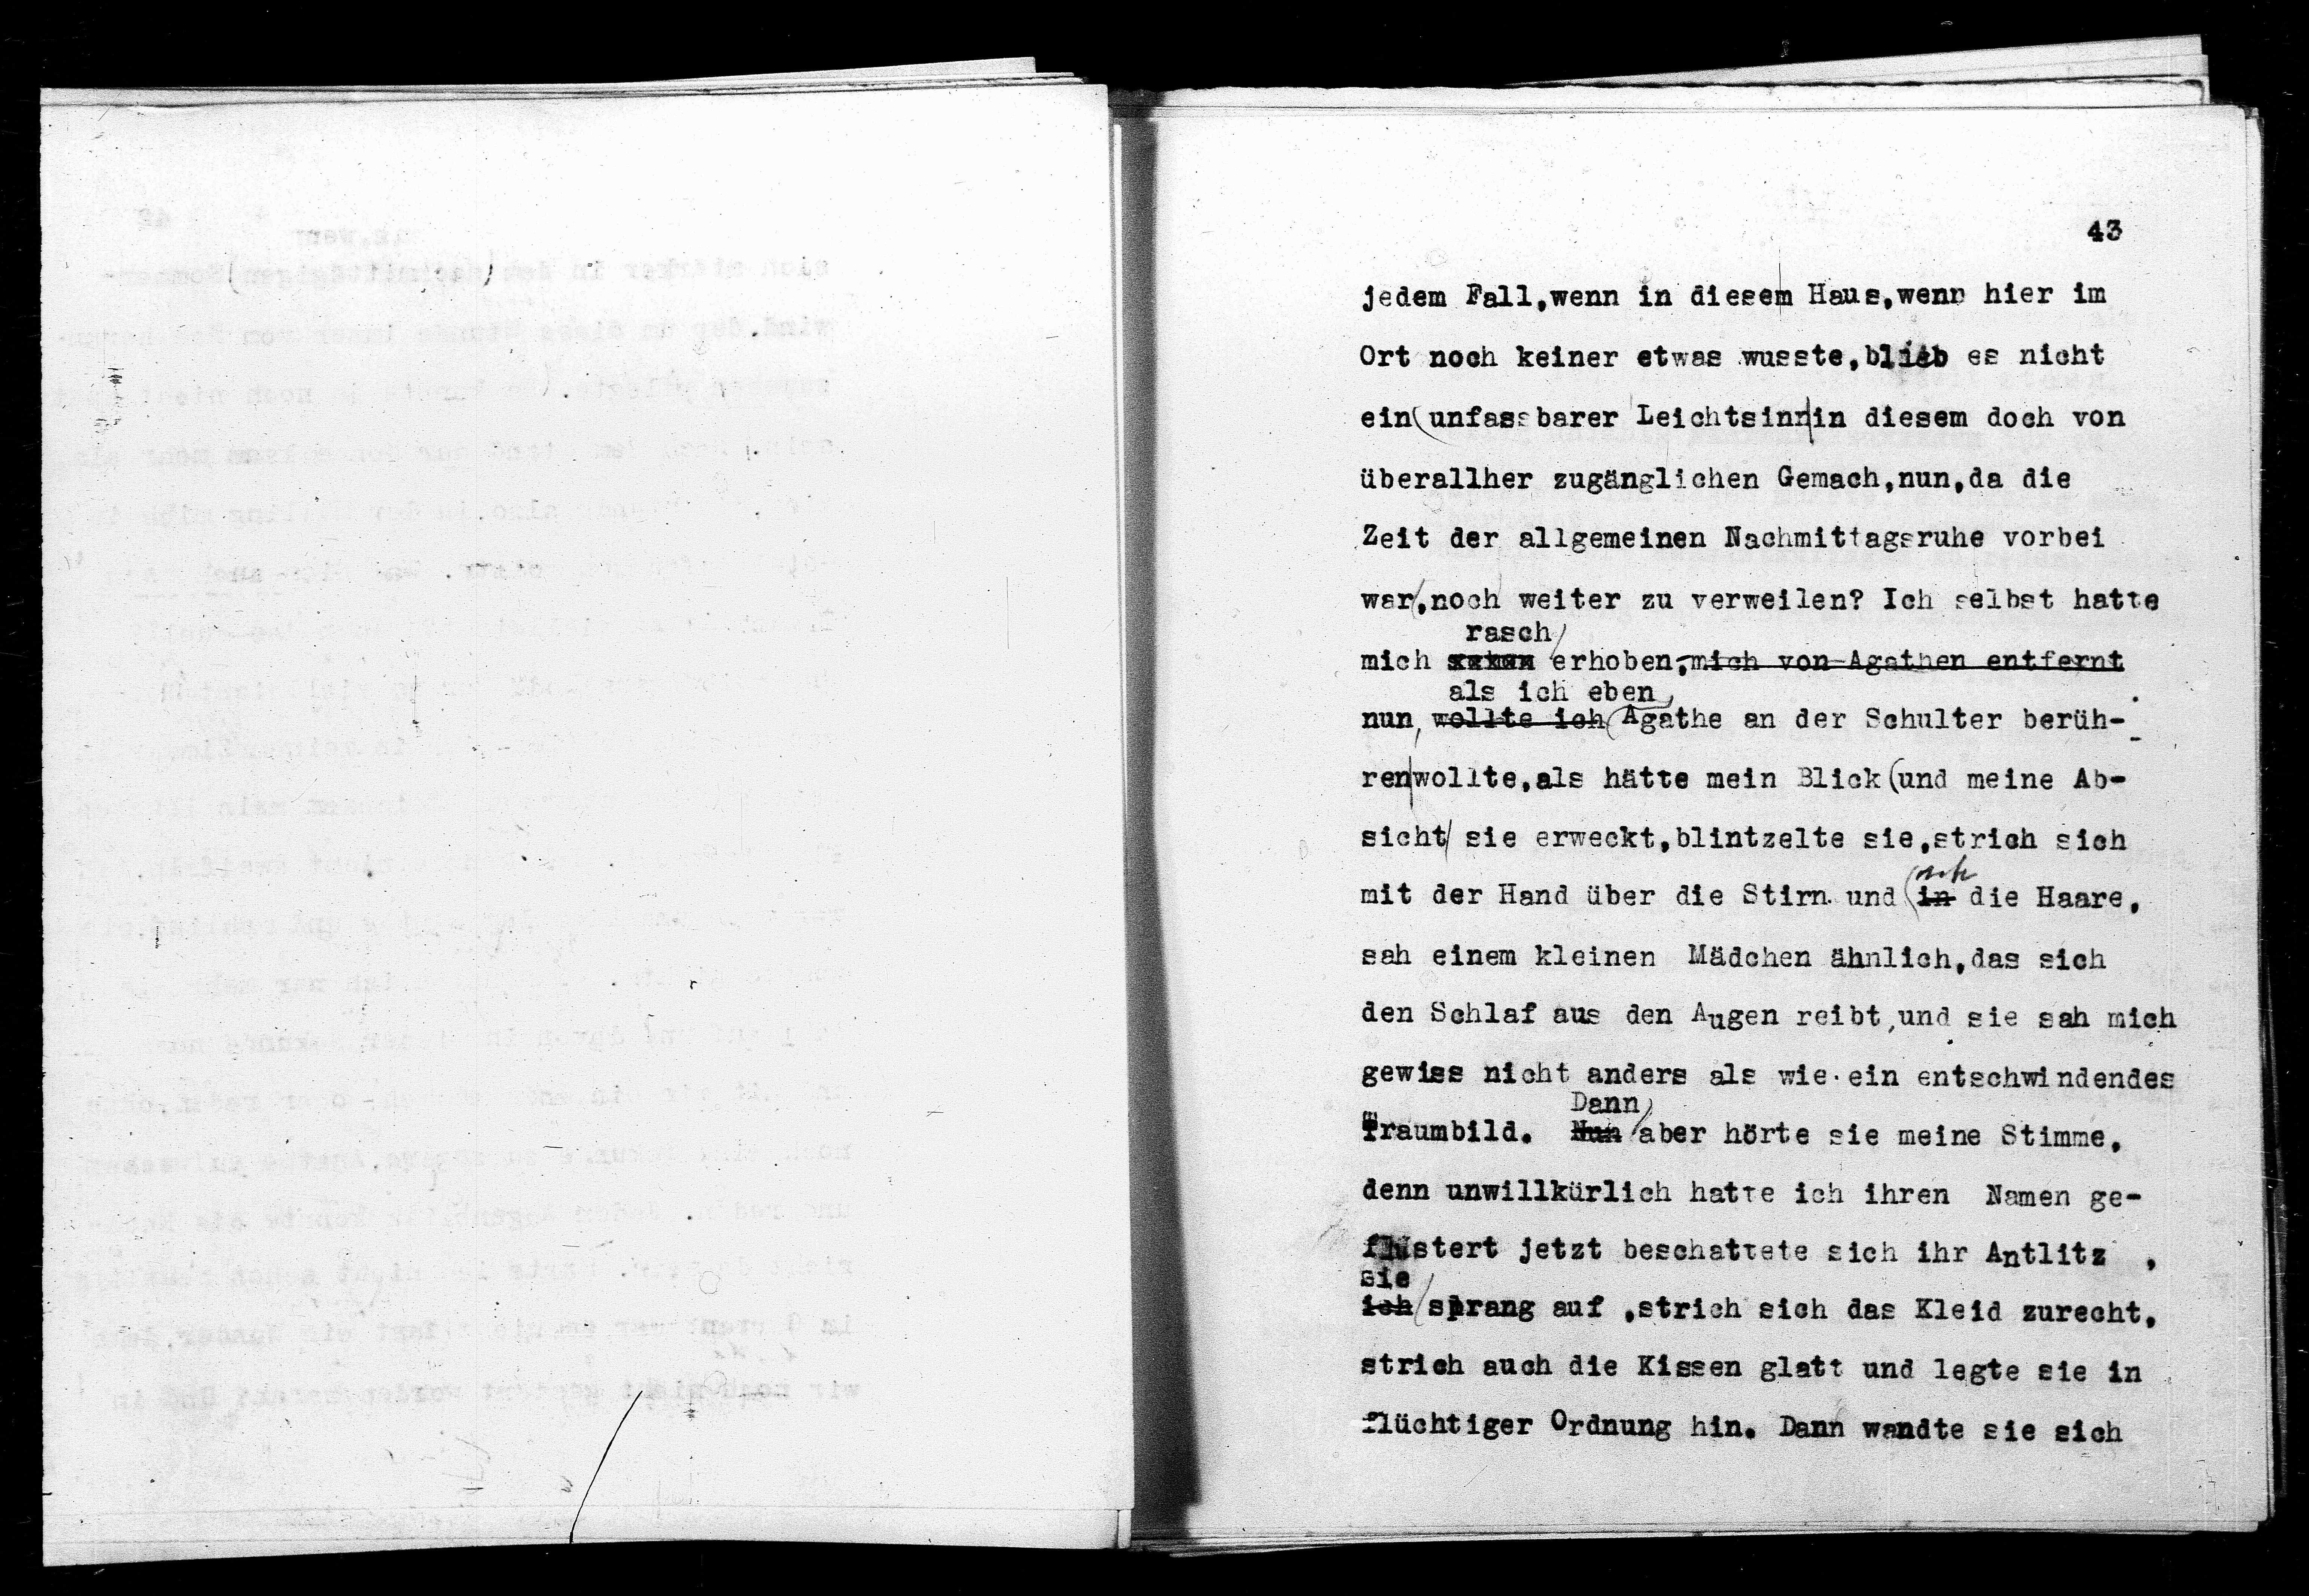 43
jedem Fall,wenn in diesem Haus,wenn hier im
Ort noch keiner etwas wusste,blieb es nicht
ein(unfassbarer Leichtsinn in diesem doch von
überallher zugänglichen Gemach,nun,da die
Zeit der allgemeinen Nachmittagsruhe vorbei
war,noch weiter zu verweilen? Ich selbst hatte
rasch
mich erhoben,mich von Agathen entfernt
als ich eben
nun, wollte ich Agathe an der Schulter berüh-
ren wollte,als hätte mein Blick(und meine Ab-
sicht sie erweckt,blintzelte sie,strich sich
mit der Hand über die Stirn und in die Haare,
sah einem kleinen Mädchen ähnlich,das sich
den Schlaf aus den Augen reibt,und sie sah mich
gewiss nicht anders als wie ein entschwindendes
Dann
Traumbild. Nun aber hörte sie meine Stimme,
denn unwillkürlich hatte ich ihren Namen ge-
flüstert jetzt beschattete sich ihr Antlitz ,
sie
ich sprang auf ,strich sich das Kleid zurecht,
strich auch die Kissen glatt und legte sie in
flüchtiger Ordnung hin. Dann wandte sie sich